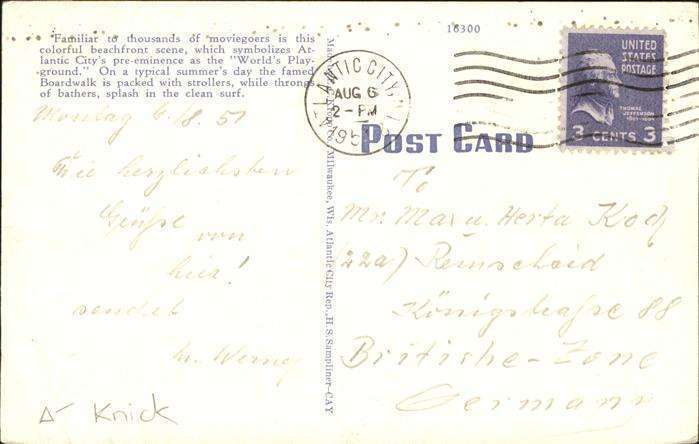 16300
Familiar to thousands of moviegoers is this
colorful beachfront scene, which symbolizes At-
lantic City's pre-eminence as the "World's Play-
ground." On a typical summer's day the famed
Boardwalk is packed with strollers, while throngs
of bathers, splash in the clean surf.
Montag 6.8.51
Die herzlichsten
Grüße
von
hier!
sendet
W. Werner
Δ- Knick
Milwaukee, Wis. Atlantic City Rep., H. S. Sampliner-CAY
ATLANTIC CITY, N.J.
AUG 6
2-PM
195
UNITED
STATES
POSTAGE
THOMAS
JEFFERSON
3 CENTS 3
POST CARD
To
Mr. Max u. Herta Koch
(22a) Remscheid
Königstraße 88
Britishe-Zone
Germany